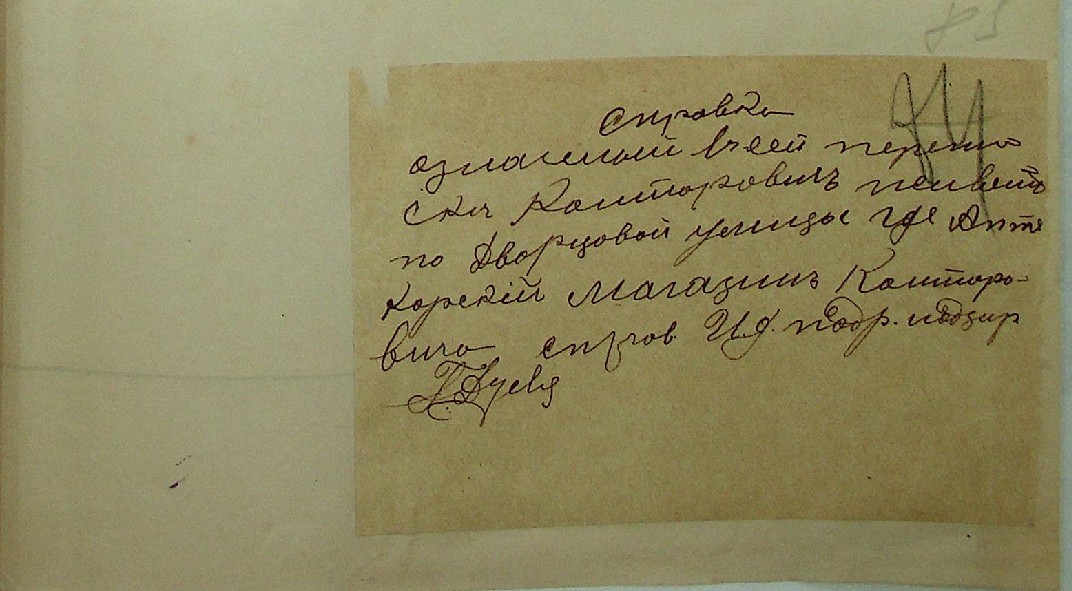 85
Справка
означеный в сей перепис
ски Канторовичъ
по Дворцовой улицы где Апте
карскій магазинъ Канторо-
вича справ И.д. подр. надзир